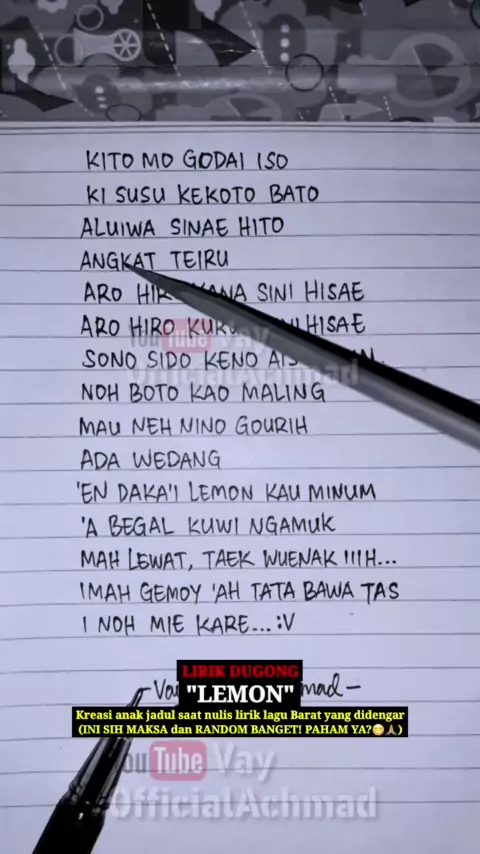 KITO MO GODAI ISO
KI SUSU KEKOTO BATO
ALUIWA SINAE HITO
ANGKAT TEIRU
ARO SINI HISAE
ARO HIRO HISAE
SONO SIDO KENO
NOH BOTO KAO MALING
MAU NEH NINO GOURIH
ADA WEDANG
'EN DAKA'I LEMON KAU MINUM
'A BEGAL KUWI NGAMUK
MAH LEWAT, TAEK WUENAK IIIH...
IMAH GEMOY 'AH TATA BAWA TAS
I NOH MIE KARE...:V
LIRIK DUGONG
"LEMON"
Kreasi anak jadul saat nulis lirik lagu Barat yang didengar
(INI SIH MAKSA dan RANDOM BANGET! PAHAM YA?😁🙏)
YouTube Vay
OfficialAchmad
YouTube Vay
OfficialAchmad